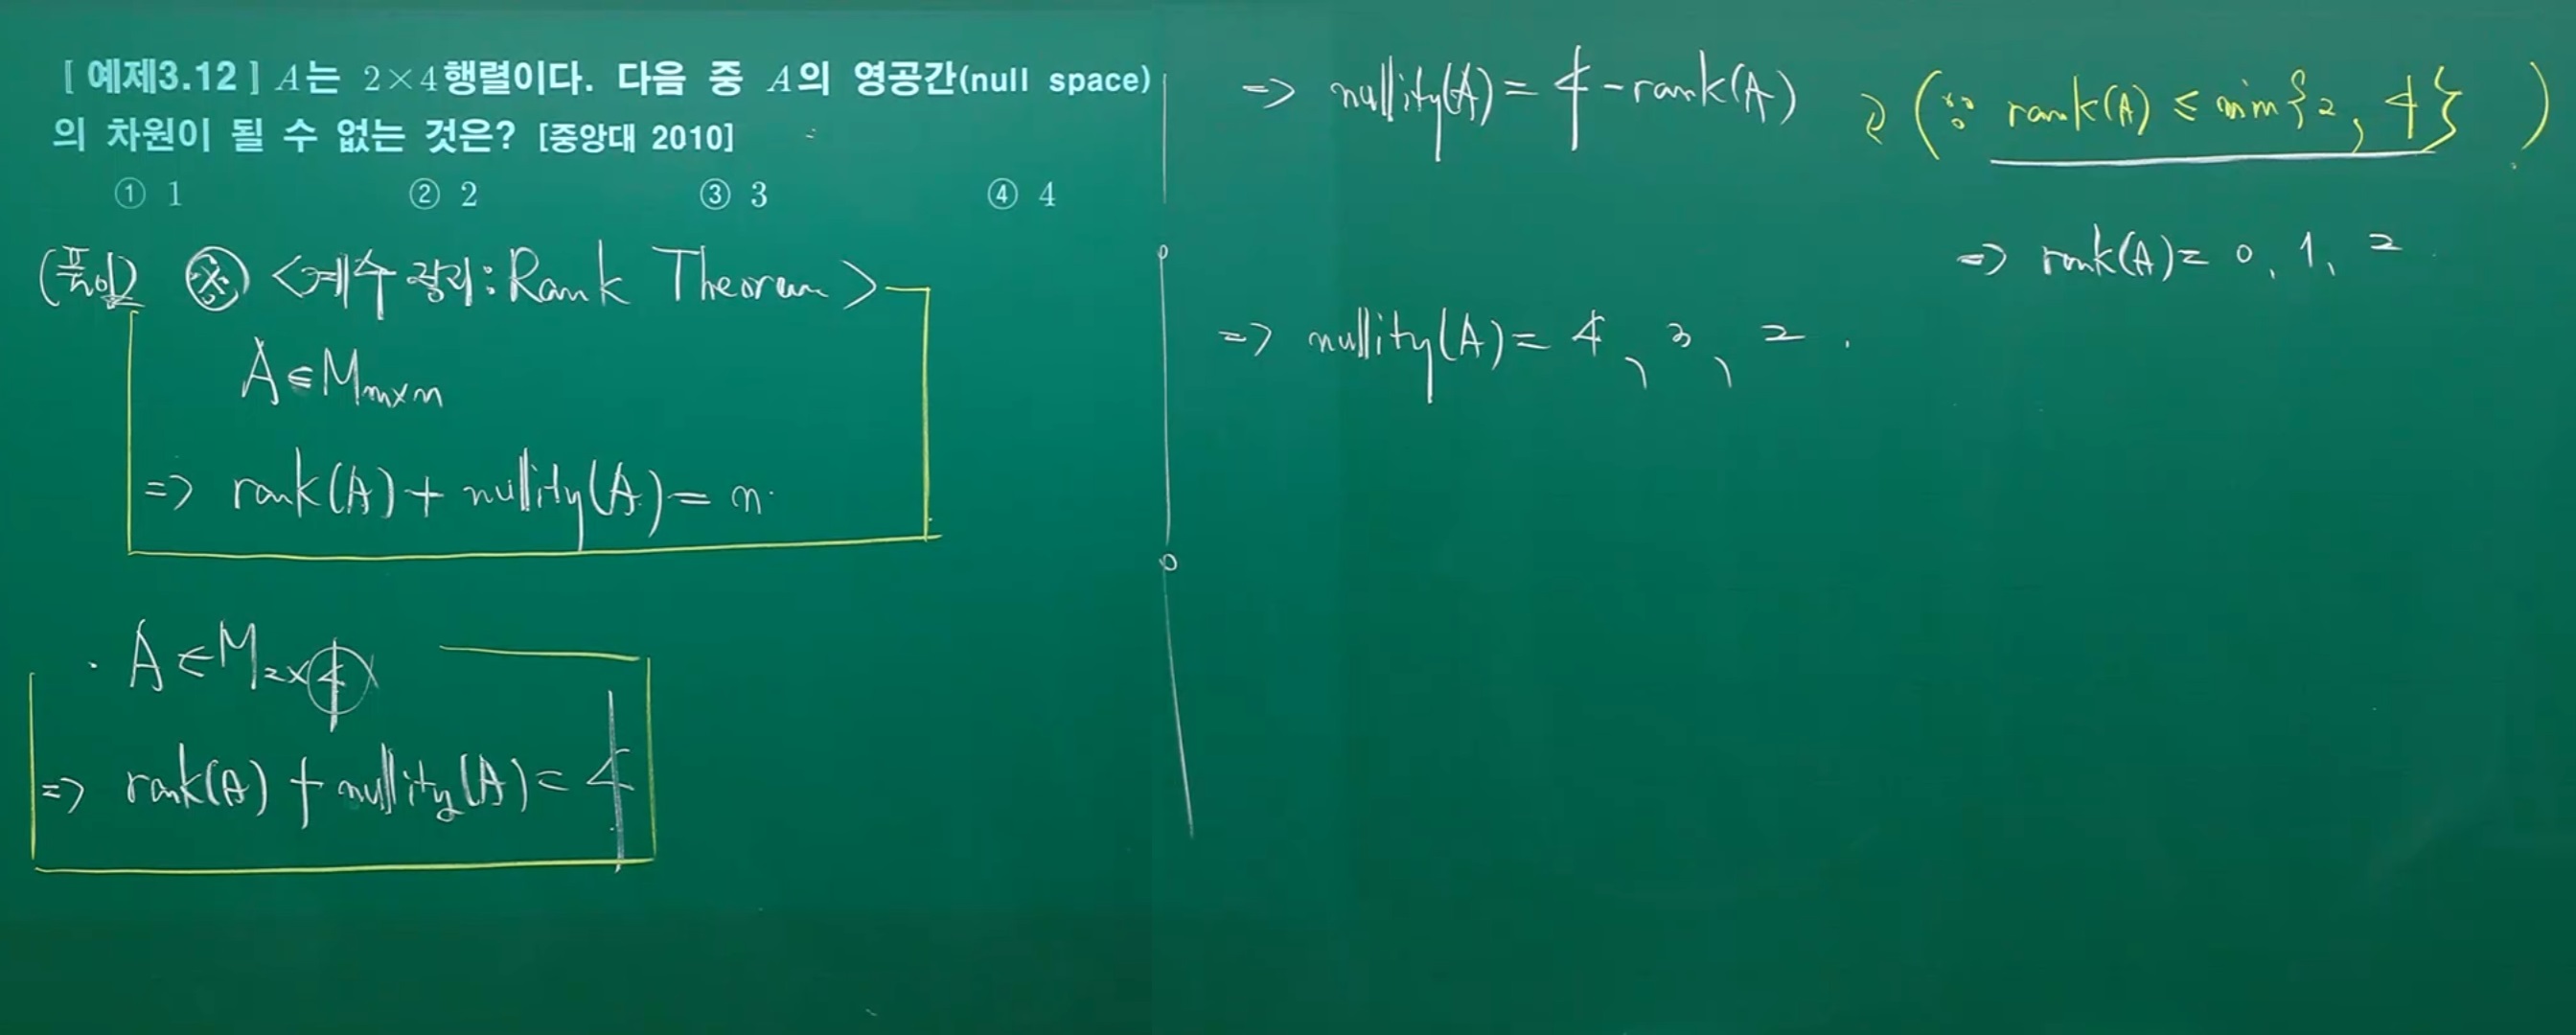 [ 예제3.12 ] A는 2×4행렬이다. 다음 중 A의 영공간(null space)
의 차원이 될 수 없는 것은? [중앙대 2010]
① 1 ② 2 ③ 3 ④ 4
(풀이) ※ <계수 정리 : Rank Theorem>
A∈Mm×n
=> rank(A) + nullity(A) = n.
· A∈M2×4
=> rank(A) + nullity(A) = 4
=> nullity(A) = 4 - rank(A)
(∵ rank(A) ≤ min{2, 4})
=> rank(A) = 0, 1, 2
=> nullity(A) = 4, 3, 2.